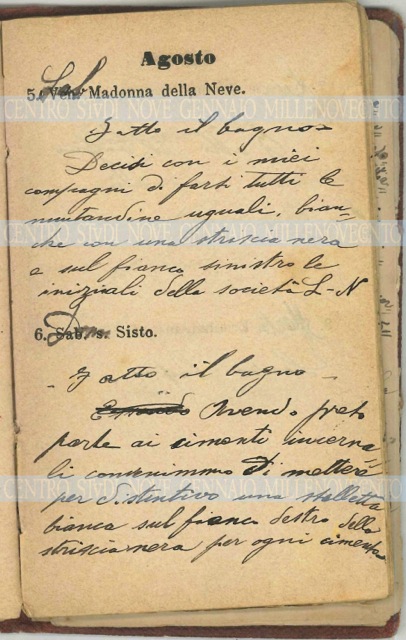 Agosto
5. Ven. Sab Madonna della Neve.
CENTRO STUDI NOVE GENNAIO MILLENOVECENTO
Fatto il bagno
Decisi con i miei
compagni di farsi tutti le
mutandine uguali, bian-
CENTRO STUDI NOVE GENNAIO MILLENOVECENTO
che con una striscia nera
e sul fianco sinistro le
iniziali della società L-N
6. Sab. Dom. s. Sisto.
- Fatto il bagno -
Avendo preso
parte ai cimenti inverna-
li convenimmo di mettere
CENTRO STUDI NOVE GENNAIO MILLENOVECENTO
per distintivo una stelletta
bianca sul fianco destro della
striscia nera per ogni cimento